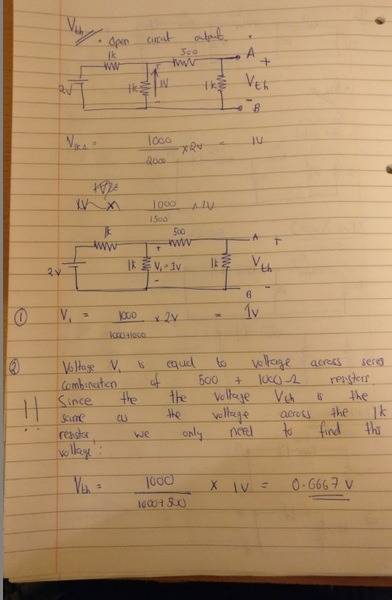 Vth
Open circuit output.
1k 500 A
+
2V 1k 1V 1k Vth
-
B
V1kΩ = 1000/2000 x 2V = 1V
1V 1000/1500 x 1V
1k 500 A +
2V 1k + V1 = 1V - 1k Vth
B -
① V1 = 1000/1000+1000 x 2V = 1V
② Voltage V1 is equal to voltage across series
combination of 500 + 1000-Ω resistors
!! Since the the voltage Vth is the
same as the voltage across the 1k
resistor, we only need to find this
voltage:
Vth = 1000/1000+500 x 1V = 0.6667 V